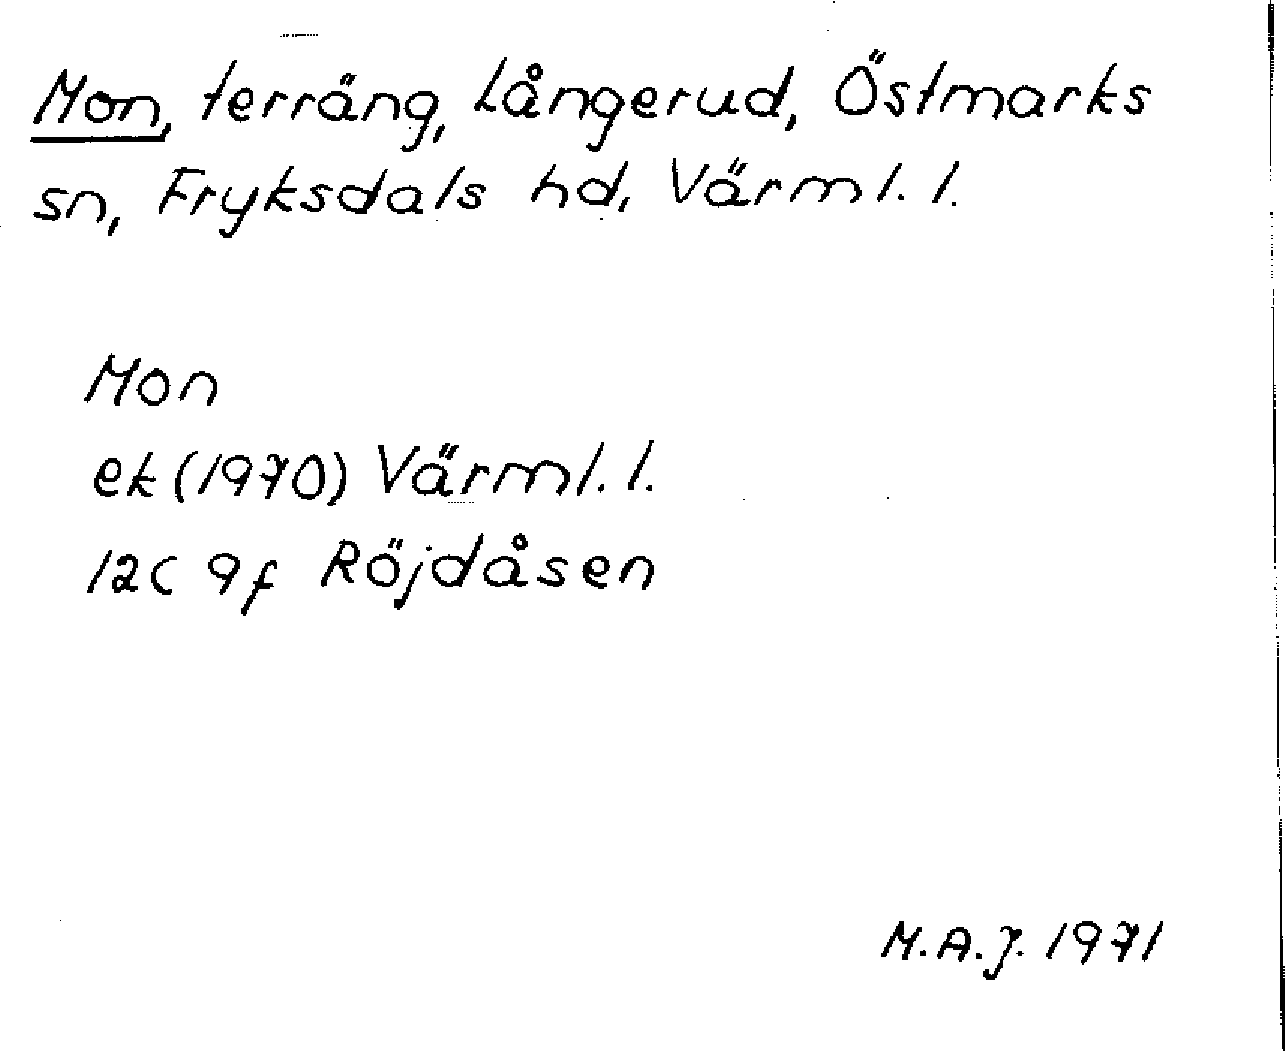 Mon, terräng, Långerud, Östmarks
sn, Fryksdals hd, Värml. l.
Mon
ek (1970) Värml. l.
12C 9f Röjdåsen
M.A.J. 1971